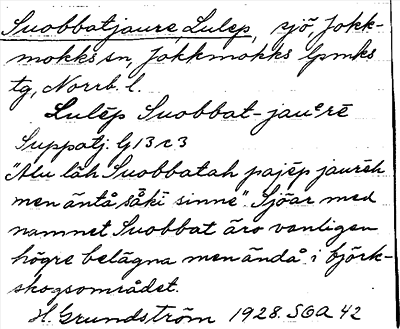 Suobbatjaure, Lulep, sjö, Jokk-
mokks sn, Jokkmokks lpmks
tg, Norrb. l.
Lulēp Suobbat-jauᵉrē
Suppatj. G13 r3
"Alu läh Suobbatah pajēp jaurēh
men äntå såkī sinne". Sjöar med
namnet Suobbat äro vanligen
högre belägna men ändå i björk-
skogsområdet.
H. Grundström 1928. SOA 42